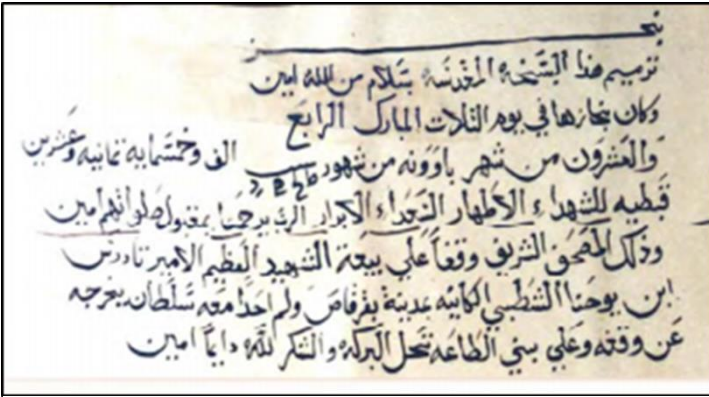 نجز
ترميم هذا النسخه المقدسه بسلام من الله امين
وكان نجازها في يوم الثلاث المبارك الرابع
والعشرون من شهر باوونه من شهور سنه الف وخمسمايه تمانيه وعشرين
قبطيه للشهداء الاطهار السعداء الابرار الرب يرحمنا بمقبول صلواتهم امين
وذلك المصحف الشريف وقفاً علي بيعة الشهيد العظيم الامير تادرس
ابن يوحنا الشطبي الكاينه بمدينة بقرقاص ولم احدا معه سلطان يخرجه
عن وقفه وعلي بني الطاعه تحل البركه والشكر لله دايماً امين